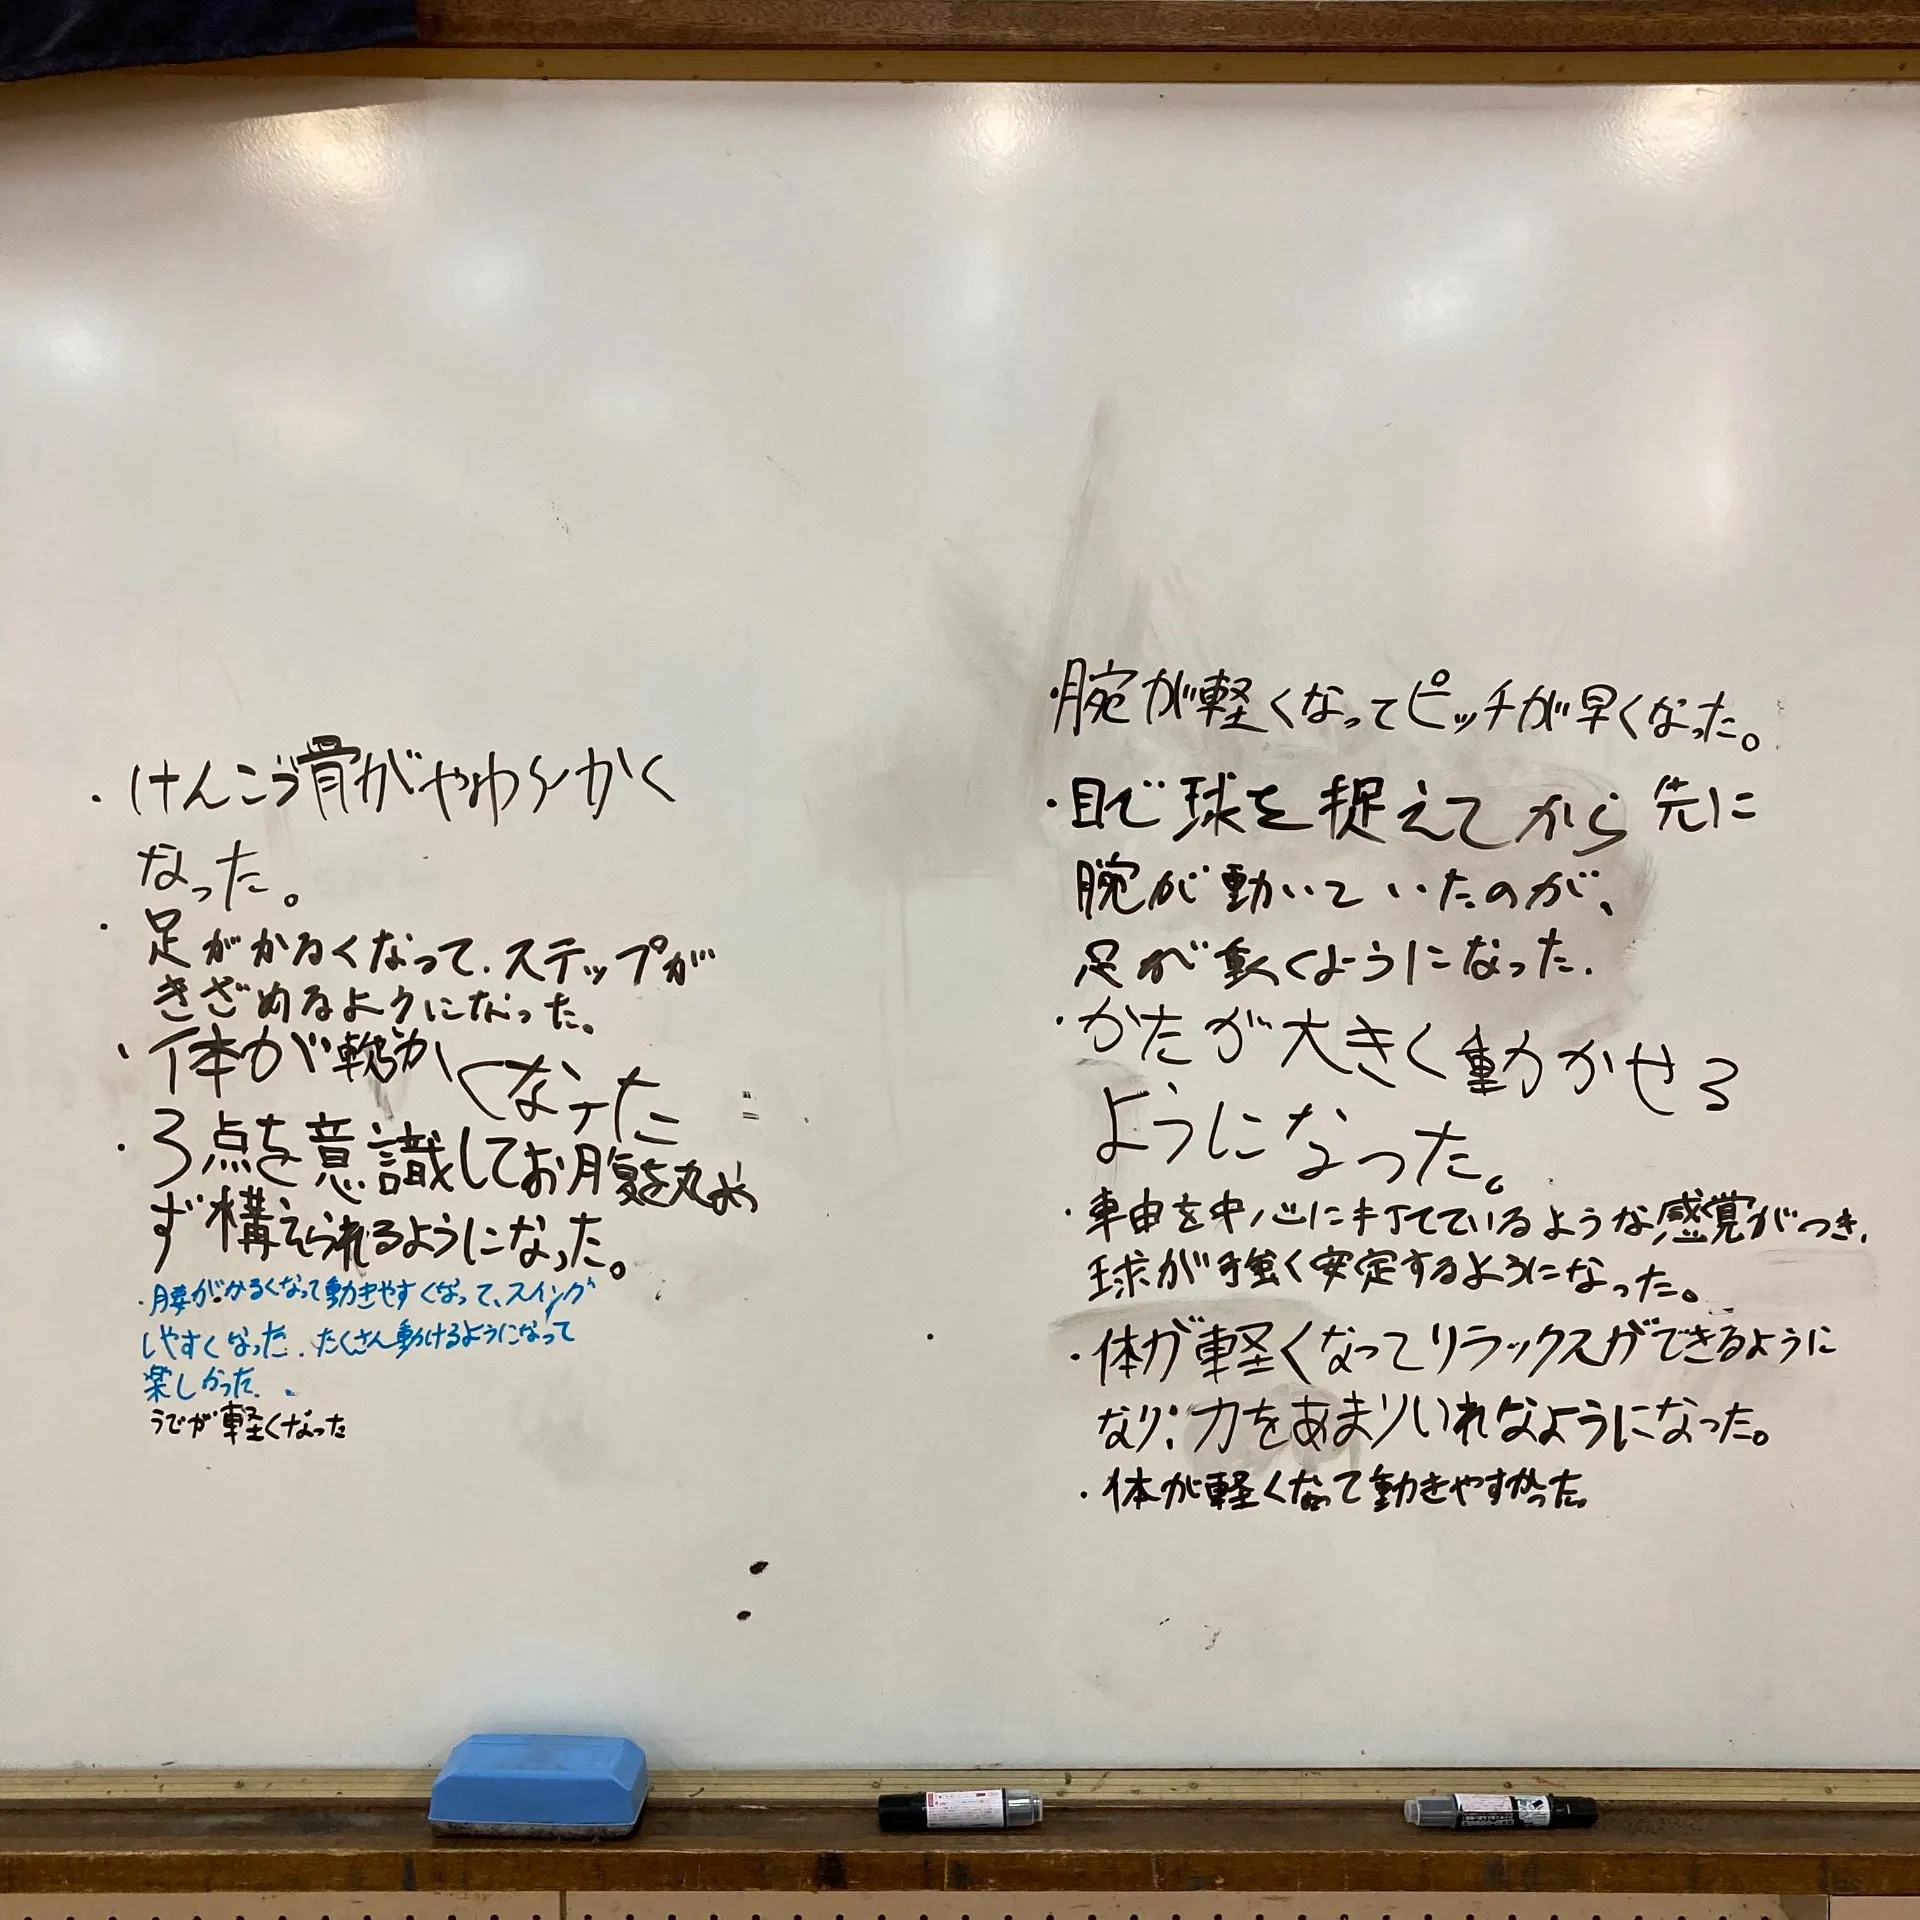 ・けんこう骨がやわらかく
なった。
・足がかるくなって、ステップが
きざめるようになった。
・体が軟らかくなった
・3点を意識してお腹を丸め
ず構えられるようになった。
・腰がかるくなって動きやすくなって、スイング
しやすくなった、たくさん動けるようになって
楽しかった。
うでが軽くなった
・腕が軽くなってピッチが早くなった。
・目で球を捉えてから先に
腕が動いていたのが、
足が動くようになった.
・かたが大きく動かせる
ようになった。
・軸を中心に打てているような感覚がつき、
球が強く安定するようになった。
・体が軽くなってリラックスができるように
なり、力をあまりいれなようになった。
・体が軽くなって動きやすかった。